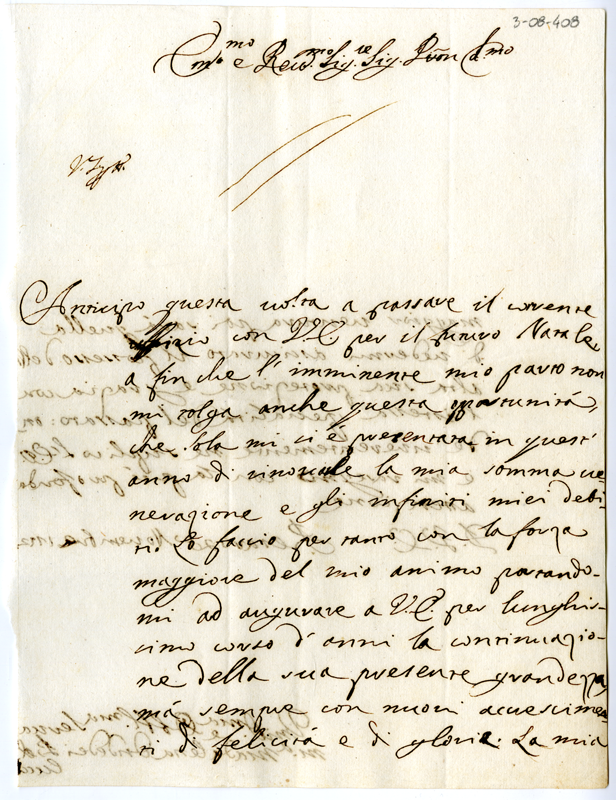 3-08-408
Em.mo e Rev.mo Sig.re Sig. P͠ron Col.mo
Anticipo questa volta a passare il corrente
uffizio con V.E. per il futuro Natale,
a fin che l'imminente mio parto non
mi tolga anche questa opportunità,
che sola mi si è presentata in quest'
anno di rinovale la mia somma ve-
nerazione e gli infiniti miei debi-
ti. Lo faccio per tanto con la forza
maggiore del mio animo portando-
mi ad augurare a V.E. per lunghis-
simo corso d'anni la continuazio-
ne della sua presente grandezza
mà sempre con nuovi accrescimen
ti di felicità e di glorie. La mia